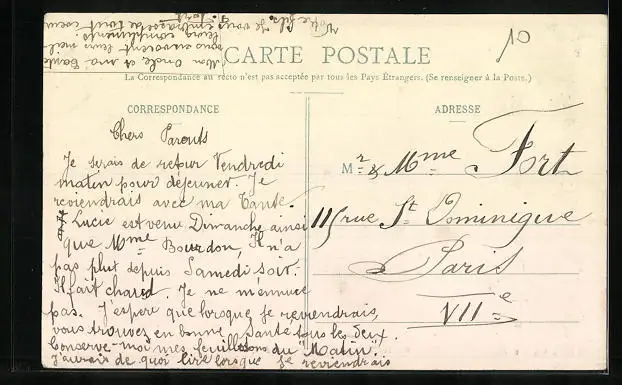 CARTE POSTALE
10
La Correspondance au recto n'est pas acceptée par tous les Pays Étrangers. (Se renseigner à la Poste.)
CORRESPONDANCE
Chers Parents
Je serais de retour Vendredi
matin pour déjeuner. Je
reviendrais avec ma Tante.
Lucie est venu Dimanche ainsi
que Mme Bourdon, Il n'a
pas plut depuis Samedi soir.
Il fait chaud. Je ne m'ennuie
pas. J'espère que lorsque je reviendrais,
vous trouvez en bonne santé tous les deux.
Conserve-moi mes feuilletons du "Matin".
J'aurais de quoi lire lorsque je reviendrais
Mon Oncle et ma Tante
vous envoient leurs meil
leurs compliments.
Votre fils. Je vous
embrasse de tout coeur
J. Fort
ADRESSE
Mr & Mme Fort
115 rue St Dominique
Paris
VIIe